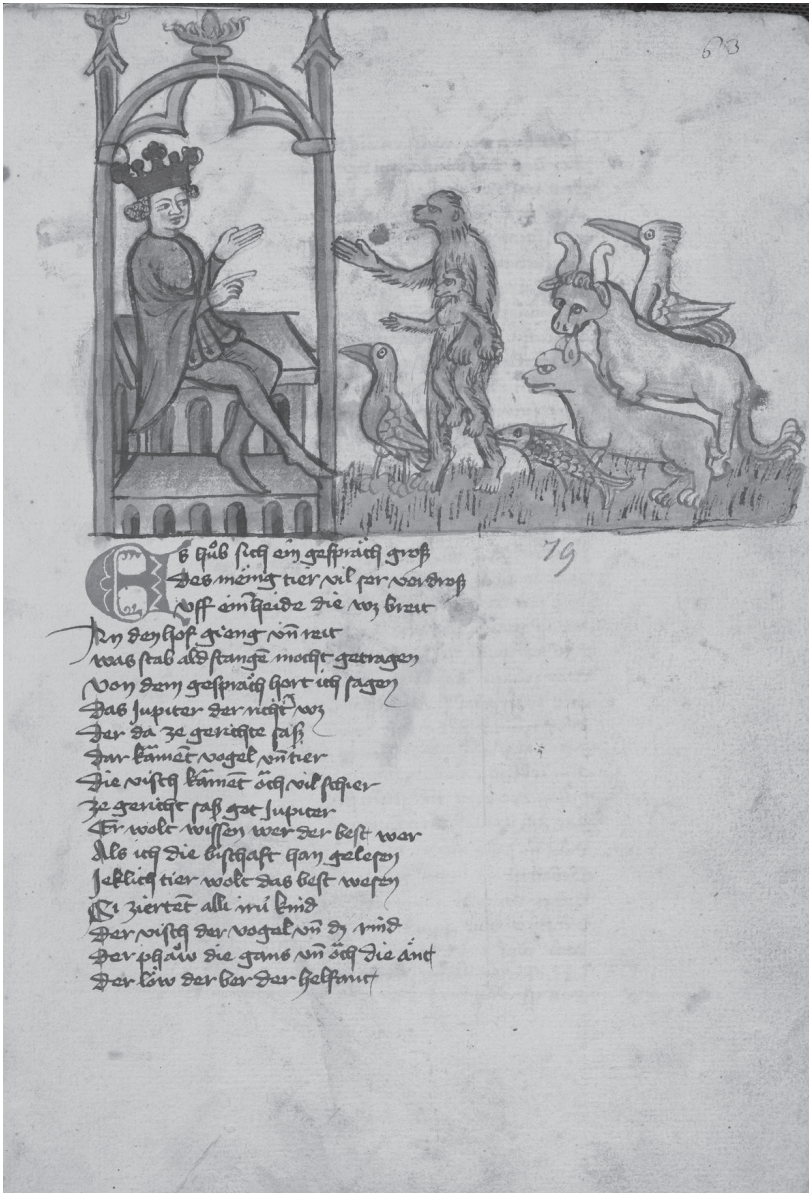 63
Es hůb sich ein gespräch groß
Des mënig tier vil ser verdroß
Vff ein̄ heide die wz breit
In den hof gieng vn̄ reit
was stab ald stangē mocht getragen
Von dem gespräch hort ich sagen
Das Jupiter der richt̄ wz
Der da ze gerichte saß
Dar kament̄ vogel vn̄ tier
Die visch kament̄ öch vil schier
ze gericht saß got Jupiter
Er wolt wissen wer der best wer
Als ich die bischaft han gelesen
Jeklich tier wolt das best wesen
Si ziertēt alli irü kind
Der visch der vogel vn̄ dz rind
Der phaͮw die gans vn̄ öch die änt
Der löw der ber der helfant
79